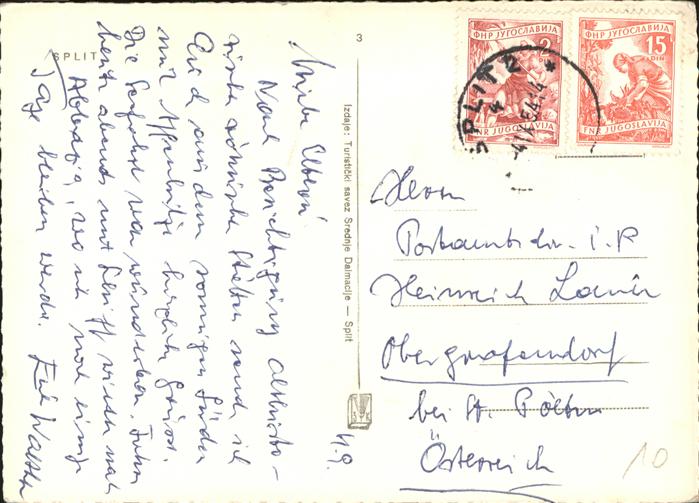 SPLIT
3
ФНР ЈУГОСЛАВИЈА
2
FNR JUGOSLAVIJA
ФНР ЈУГОСЛАВИЈА
15
DIN
FNR JUGOSLAVIJA
SPLIT 2
Izdaje: Turistički savez Srednje Dalmacije — Split
Herrn
Postamtsdir. i. R
Heinrich
Obergrafendorf
bei St. Pölten
Österreich
10
4.9.
Liebe Eltern!
Nach Besichtigung
römischer Stätten sende ich
Euch aus dem sonnigen Süden
mit herzliche Grüsse.
Die Seefahrt war wunderbar, fahre
heute abends mit Schiff wieder nach
Abbazia, wo ich noch einige
Tage bleiben werde. Euer Walter